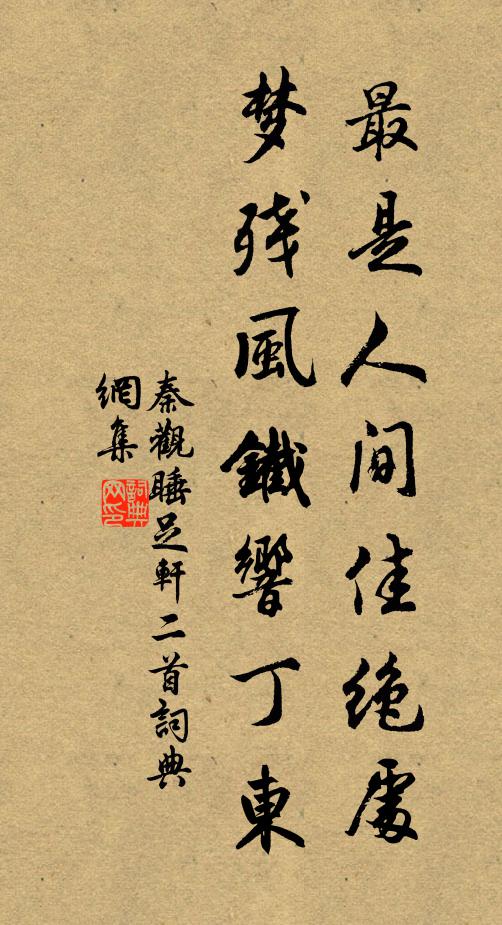 最是人间佳绝處
梦残風鐵響丁東
秦觀睡足軒二首詞典
網集
詞典
网印